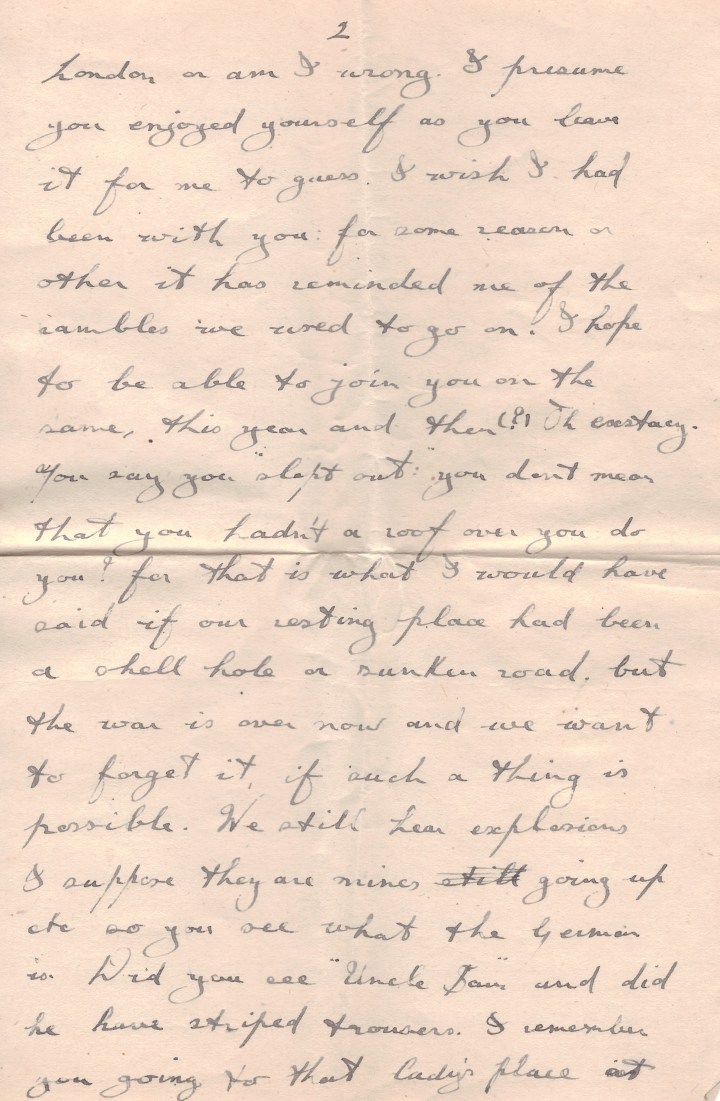 2
London or am I wrong. I presume
you enjoyed yourself as you leave
it for me to guess. I wish I had
been with you: for some reason or
other it has reminded me of the
rambles we used to go on. I hope
to be able to join you on the
same, this year and then (?) Oh exstacy.
You say you "slept out": you don't mean
that you hadn't a roof over you do
you? for that is what I would have
said if our resting place had been
a shell hole or sunken road. but
the war is over now and we want
to forget it, if such a thing is
possible. We still hear explosions
I suppose they are mines still going up
etc so you see what the German
is. Did you see "Uncle Sam" and did
he have striped trousers. I remember
you going to that lady's place at